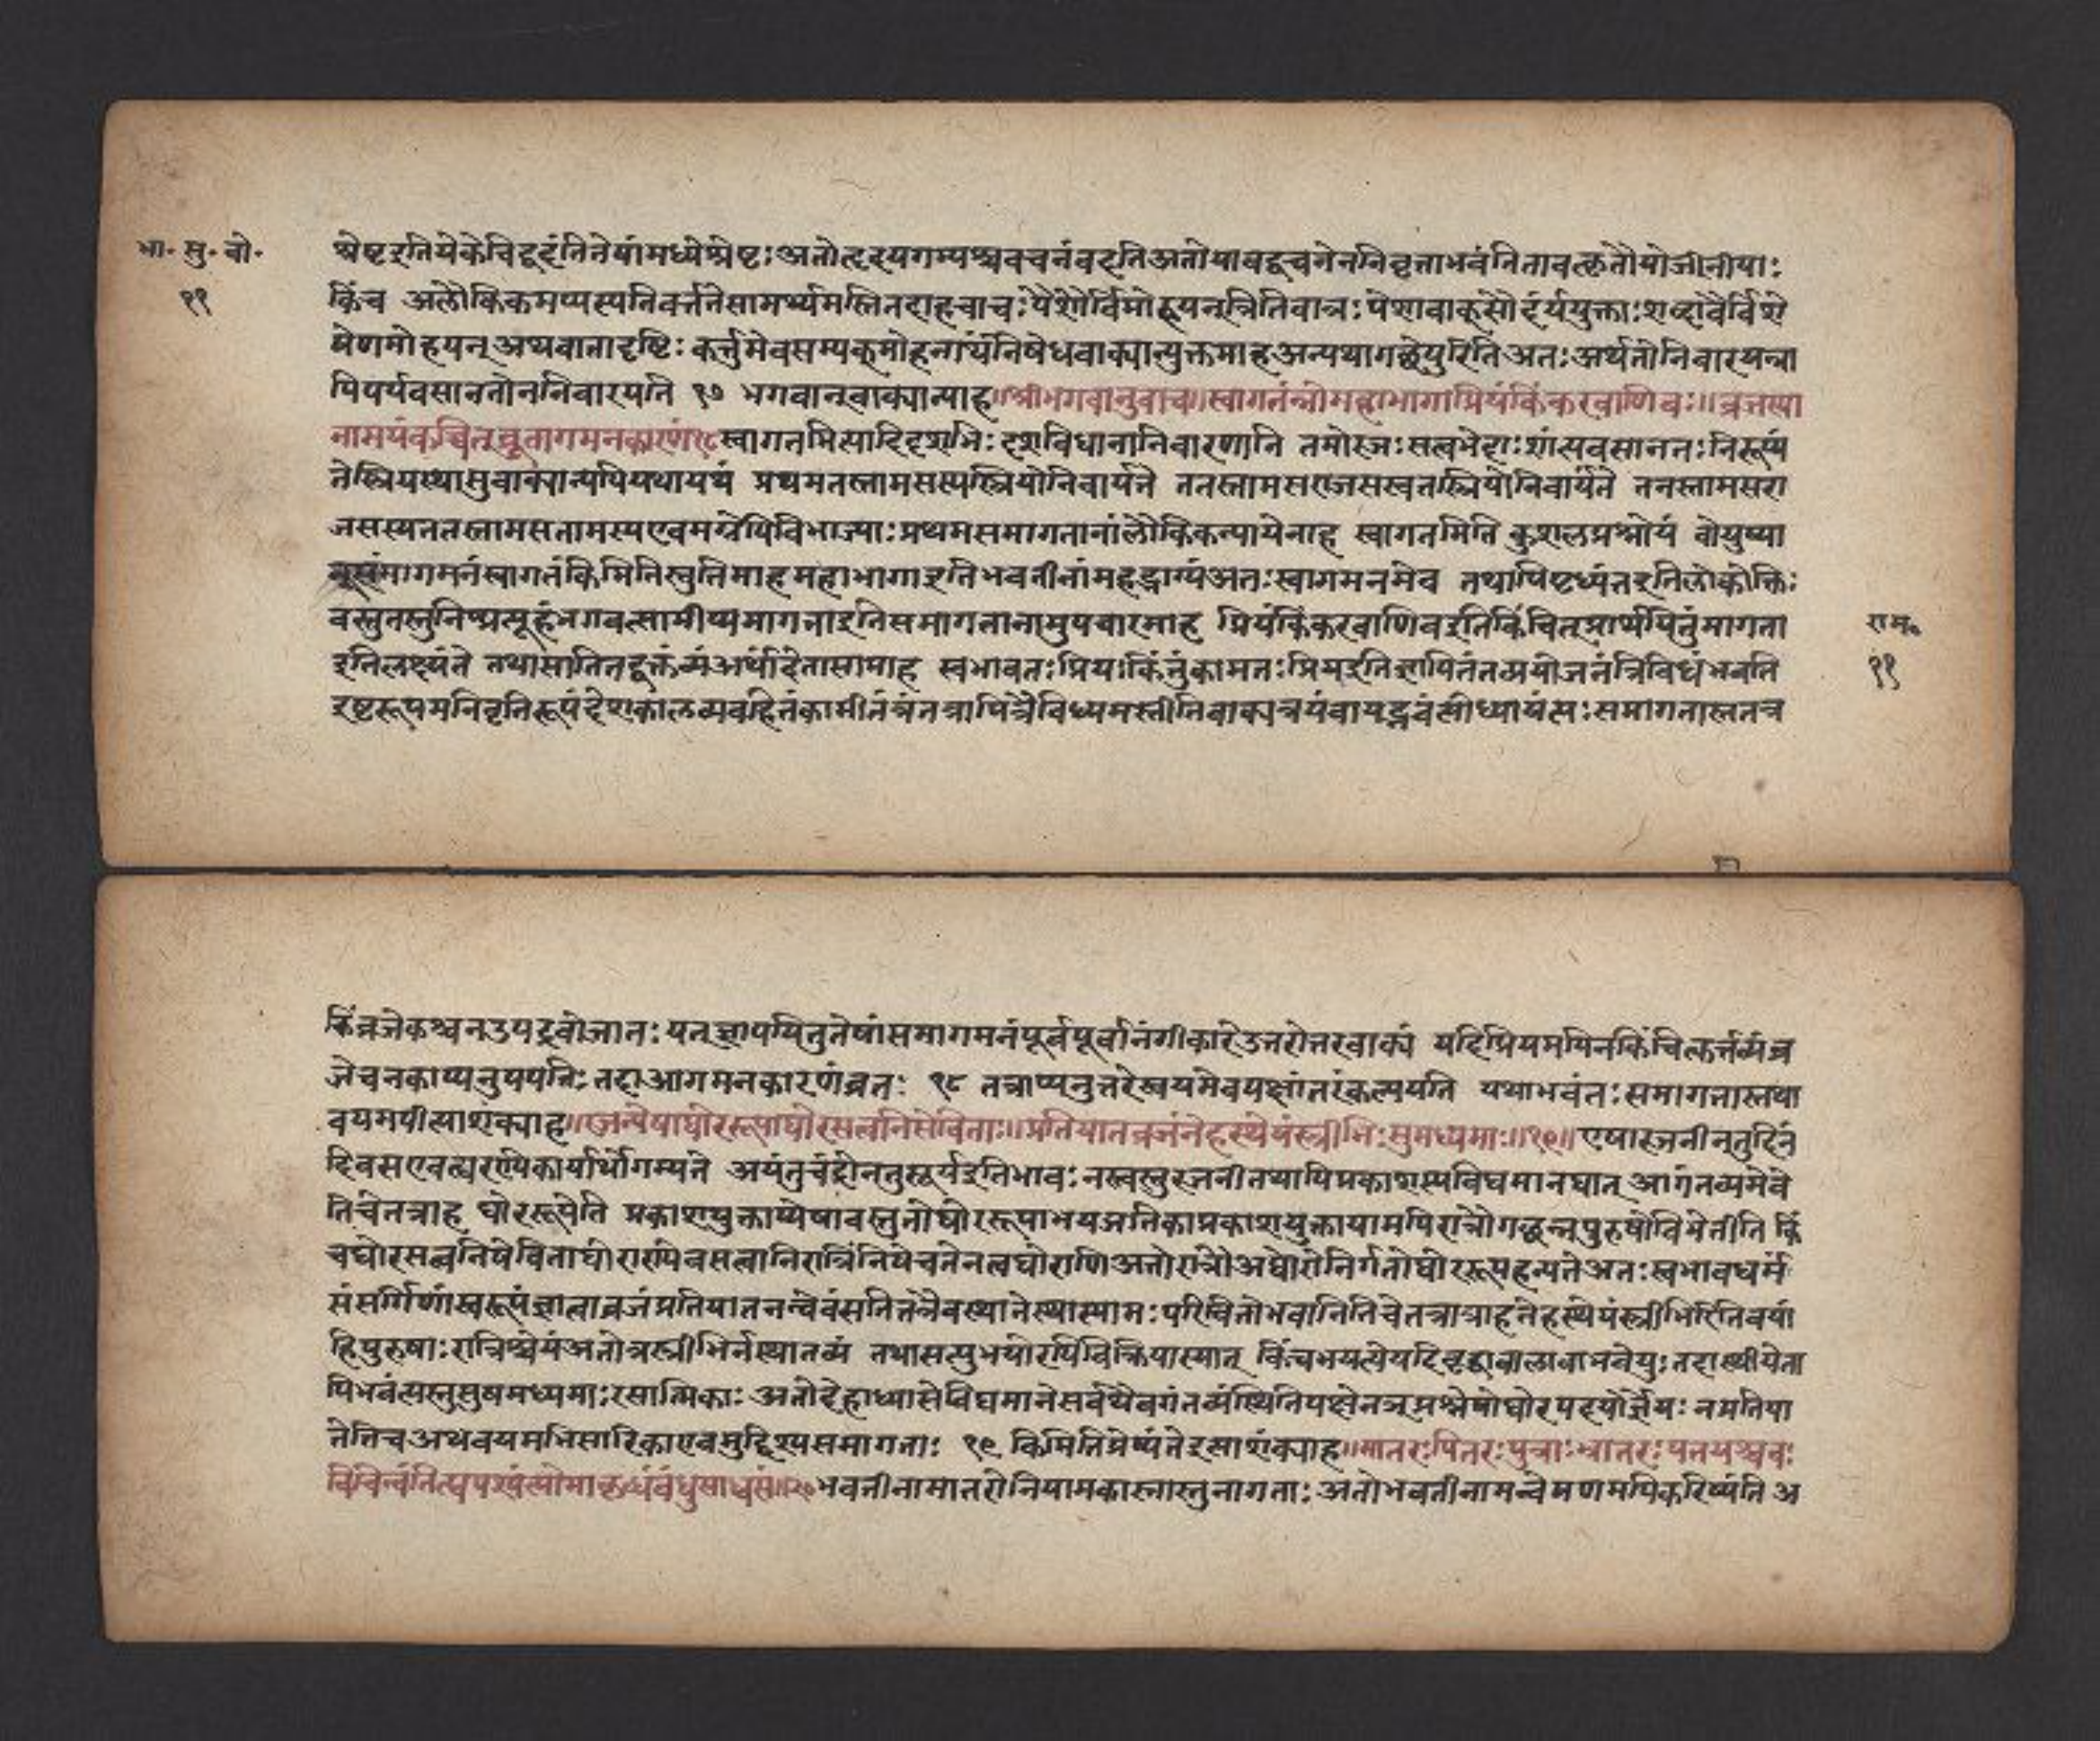 भा. सु. बो.
११
श्रेष्ट इति ये केचिद्वदंति तेषां मध्ये श्रेष्टः अतो हृदयगम्यश्च वचनं वदति अतो यावद्वचनेन निवृत्ता भवंति तावत्कृतौ योजनीयाः
किंच अलौकिकमप्यस्य निवर्त्तने सामर्थ्यमस्ति तदाह वाचःपेशैर्विमोहयन्निति वाचः पेशा वाक्सौंदर्ययुक्ताः शब्दा वै विशे
षेण मोहयन् अथवा ता दृष्टिः कर्त्तुमेव सम्यक् मोहनार्थं निषेधवाक्यान्युक्तमाह अन्यथा गच्छेयुरिति अतः अर्थतो निवारयन्ना
पि पर्यवसानतो न निवारयति १७ भगवान् वाक्यान्याह ॥श्रीभगवानुवाच॥ स्वागतं वो महाभागा प्रियं किं करवाणि वः॥ व्रजस्या
नामयं कच्चित् ब्रूतागमनकारणं १८ स्वागतमित्यादिदशभिः दशविधानानिवारणानि तमोरजःसत्वभेदाः शांत्यवसानतः निरूप्यं
ते स्त्रियस्थासु वाक्यान्यपि यथायथं प्रथमतस्तामसस्यस्त्रियो निवार्यंते ततस्तामसराजसस्वतस्त्रियो निवार्यंते ततस्तामसरा
जसस्य ततस्तामसतामस्य एवमग्रेपि विभाज्याः प्रथमसमागतानां लौकिकन्यायेनाह स्वागतमिति कुशलप्रश्नोयं वो युष्मा
समागमनं स्वागतं किमिति स्तुतिमाह महाभागा इति भवतीनां महद्भाग्यं अतः स्वागमनमेव तथापि पृछ्यंत इति लोकोक्तिः
वस्तुतस्तु निष्प्रत्यूहं भगवत्सामीप्यमागता इति समागतानामुपचारमाह प्रियं किं करवाणि व इति किंचित् प्रार्थयितुं मागता
इति लक्ष्यंते तथा सति तद्वक्तव्यं अर्थादेतासामाह स्वभावतः प्रियः किंतुं कामतः प्रियइति ज्ञापितं तत्प्रयोजनं त्रिविधं भवति
इष्टरूपमनिवृत्तिरूपं देशकालव्यवहितं कामीतं तत्रापि त्रैविध्यमस्तीति वाक्यत्रयं वा यद्भवंसीध्यायंसः समागतास्तत्र
राम॰
११
किं व्रजे कश्चन उपद्रवो जातः यत् ज्ञापयितु तेषां समागमनं पूर्वपूर्वानंगीकारे उत्तरोत्तरवाक्यं यदि प्रियमपि न किंचित्कर्त्तव्यं व्र
जे च न काप्यनुपपत्तिः तदा आगमनकारणं ब्रूत १८ तत्राप्यनुत्तरे स्वयमेव पक्षांतरं कल्पयति यथा भवंतः समागतास्तथा
वयमपीत्याशंक्याह ॥रजन्येषा घोररूपा घोरसत्वनिसेविताः॥ प्रतियात व्रजं नेह स्थेयं स्त्रीभिः सुमध्यमाः॥१९॥ एषा रजनी न तु दिनं
दिवस एवत्परापि कार्यार्थो गम्यते अयं तु चंद्रो न तु सूर्य इति भावः नस्वस्तु रजनी तथापि प्रकाशस्य विद्यमानद्यात् आगंतव्यमेवे
ति चेत्तत्राह घोररूपेति प्रकाशयुक्ताप्येषा वस्तुतो घोररूपा भयजनिका प्रकाशयुक्तायामपि रात्रौ गछन् पुरुषो विभेतीति किं
च घोरसत्वनिषेविता घोराण्येव सत्वानि रात्रिं निषेवते नत्वघोराणि अतो रात्रौ अघोरो निर्गतो घोररूपहन्यते अतः स्वभावधर्म
संसर्गिणां स्वरूपं ज्ञात्वा व्रजं प्रतियात नन्वेवं सति तत्रैव स्थाने स्थास्यामः परिचितो भवानिति चेतत्रात्राह नेह स्थेयं स्त्रीभिरिति वयां
हि पुरुषाः रात्रिश्चेयं अतोत्र स्त्रीभिर्न स्थातव्यं तथा सत्युभयोरपि विक्रियास्यात् किंच भयत्येयदि वृद्धा बाला वा भवेयुः तदा स्थीयेता
पि भवंत्यस्तु सुषमध्यमाः रसात्मिकाः अतो देहाध्यासे विद्यमाने सर्वथैव गंतव्यं स्थितिपक्षेनञ्प्रश्लेषो घोरपदयोर्ज्ञेयः न प्रतिया
तेति च अथ वयमभिसारिका एव मुद्दिश्य समागताः १९ किमिति प्रेष्यंते इत्याशंक्याह ॥मातरः पितरः पुत्राः भ्रातरः पतयश्च वः
विचिन्वंति त्यपश्यंतो मा कृध्वं बंधुसाध्वसं॥२०॥ भवतीनां मातरो नियामकास्तास्तु नागताः अतो भवतीनामन्वेषणमपि करिष्यंति अ